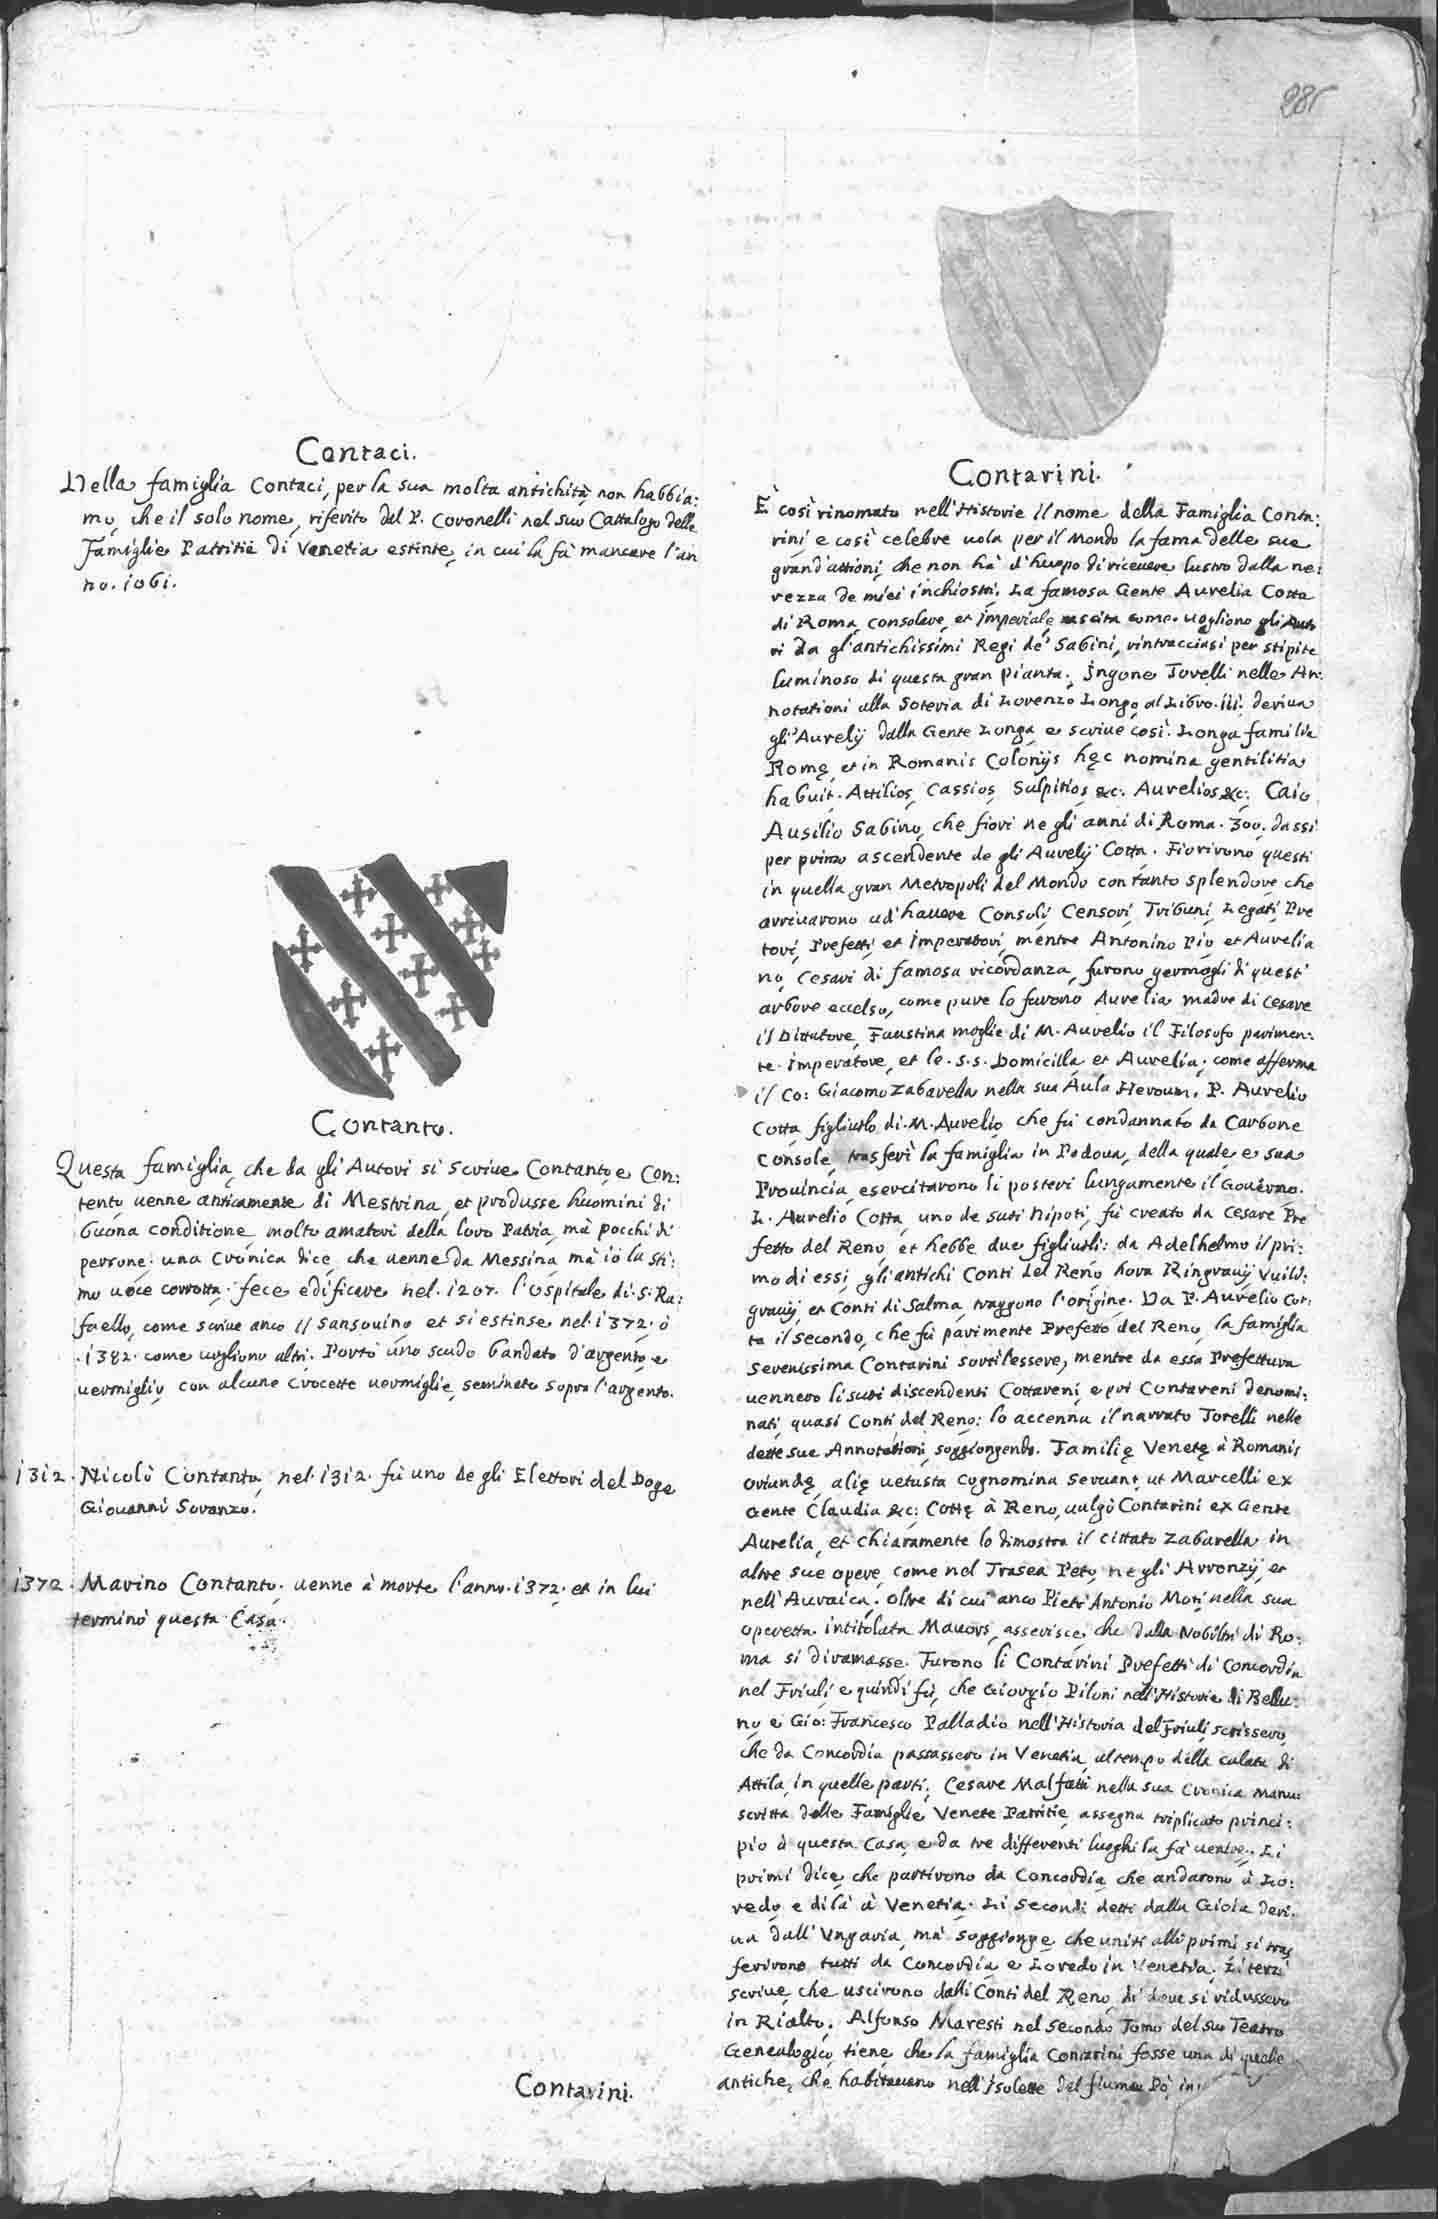 285
Contaci.
Della famiglia Contaci, per la sua molta antichità, non habbia:
mo, che il solo nome, riferito dal P. Coronelli nel suo Cattalogo delle
famiglie Patritie di Venetia estinte, in cui la fà mancare l'an
no. 1061.
Contanto.
Questa famiglia, che da gli Autori si scrive Contanto, e Con:
tento uenne anticamente di Mestrina, et produsse huomini di
buona conditione, molto amatori della loro Patria, mà pocchi di
persone: una Cronica dice, che uenne da Messina, mà iò la sti:
mo uoce corrotta: fece edificare nel. 1207. l'ospitale di. S. Ra:
faello, come scriue anco il Sansouino et si estinse nel. 1372. ò
.1382. come uogliono altri. Portò uno scudo bandato d'argento, e
uermiglio, con alcune crocette uermiglie, seminate sopra l'argento.
1312. Nicolò Contanto, nel. 1312. fù uno de gli Elettori del Doge
Giouanni Soranzo.
1372. Marino Contanto. uenne à morte l'anno. 1372. et in lui
terminò questa Casa.
Contarini.
Contarini.
È così rinomato nell'Historie il nome della Famiglia Conta:
rini, e così celebre uola per il Mondo la fama delle sue
grand'attioni, che non hà d'huopo di riceuere lustro dalla ne:
rezza de miei inchiostri. La famosa Gente Aurelia Cotta
di Roma, consolare, et imperiale, uscita come uogliono gli Auto
ri da gl'antichissimi Regi de' Sabini, rintracciasi per stipite
luminoso di questa gran pianta. Ingone Torelli nelle An:
notationi alla Soteria di Lorenzo Longo, al Libro. iii. deriua
gli Aurelij dalla Gente Longa, e scriue così. Longa familia
Romę, et in Romanis Colonijs hęc nomina gentilitia
habuit. Attilios, Cassios, Sulpitios &c. Aurelios &c. Caio
Ausilio Sabino, che fiorì ne gli anni di Roma. 300. dassi
per primo ascendente de gli Aurelij Cotta. Fiorirono questi
in quella gran Metropoli del Mondo con tanto splendore, che
arriuarono ad'hauere Consoli, Censori, Tribuni, Legati, Pre
tori, Prefetti, et Imperatori, mentre Antonino Pio, et Aurelia
no, Cesari di famosa ricordanza, furono germogli di quest'
arbore eccelso, come pure lo furono Aurelia madre di Cesare
il Dittatore, Faustina moglie di M. Aurelio il Filosofo parimen:
te Imperatore, et le. S. S. Domicilla, et Aurelia, come afferma
il Co: Giacomo Zabarella nella sua Aula Heroum. P. Aurelio
Cotta figliuolo di. M. Aurelio, che fù condannato da Carbone
Console, trasferì la famiglia in Padoua, della quale, e sua
Prouincia, esercitarono li posteri lungamente il Gouerno.
L. Aurelio Cotta, uno de suoi Nipoti, fù creato da Cesare Pre
fetto del Reno, et hebbe due figliuoli: da Adelhelmo il pri:
mo di essi, gli antichi Conti del Reno hora Ringrauij Vuild:
grauij, et Conti di Salma, traggono l'origine. Da P. Aurelio Cot:
ta il secondo, che fù parimente Prefetto del Reno, la famiglia
Serenissima Contarini sortì l'essere, mentre da essa Prefettura
uennero li suoi discendenti Cottareni, e poi Contareni denomi:
nati, quasi Conti del Reno: lo accenna il narrato Torelli nelle
dette sue Annotationi, soggiongendo. Familię Venetę à Romanis
oriundę, alię uetusta cognomina seruant, ut Marcelli ex
Gente Claudia &c: Cottę à Reno, uulgò Contarini ex Gente
Aurelia, et chiaramente lo dimostra il cittato Zabarella in
altre sue opere, come nel Trasea Peto, ne gli Arronzij, et
nell'Auraica. Oltre di cui anco Pietr'Antonio Moti nella sua
operetta intitolata Mauors, asserisce, che dalla Nobiltà di Ro:
ma si diramasse. Furono li Contarini Prefetti di Concordia
nel Friuli, e quindi fù, che Giorgio Piloni nell'Historia di Bellu:
no, e Gio: Francesco Palladio nell'Historia del Friuli, scrissero,
che da Concordia passassero in Venetia, al tempo della calata di
Attila, in quelle parti. Cesare Malfatti nella sua Cronica Manu:
scritta delle Famiglie Venete Patritie, assegna triplicato princi:
pio à questa Casa, e da tre differenti luoghi la fà uenire. Li
primi dice, che partirono da Concordia, che andarono à Lo:
redo, e di là à Venetia. Li secondi detti dalla Gioia deri:
ua dall'Vngaria, mà soggionge, che uniti alli primi si tras
ferirono tutti da Concordia, e Loredo in Venetia. Li terzi
scriue, che uscirono dalli Conti del Reno, di doue si ridussero
in Rialto. Alfonso Maresti nel secondo Tomo del suo Teatro
Genealogico, tiene, che la famiglia Contarini fosse una di quelle
antiche, che habitauano nell'Isolette del fiume Pò, in